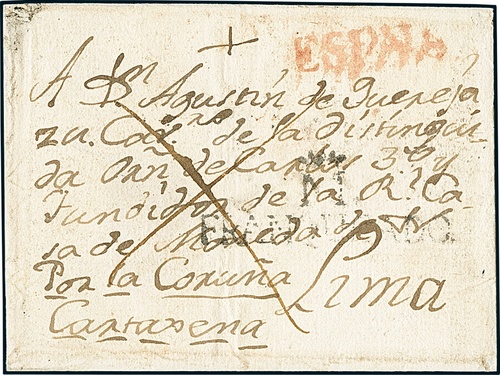 ESPAÑA
A Dn Agustin de Quereja
zu. Cavro de la distingui
da Orn de Carlos 3o y
Fundidor de la Rl Ca
sa de Moneda de
Por la Coruña Lima
Cartagena